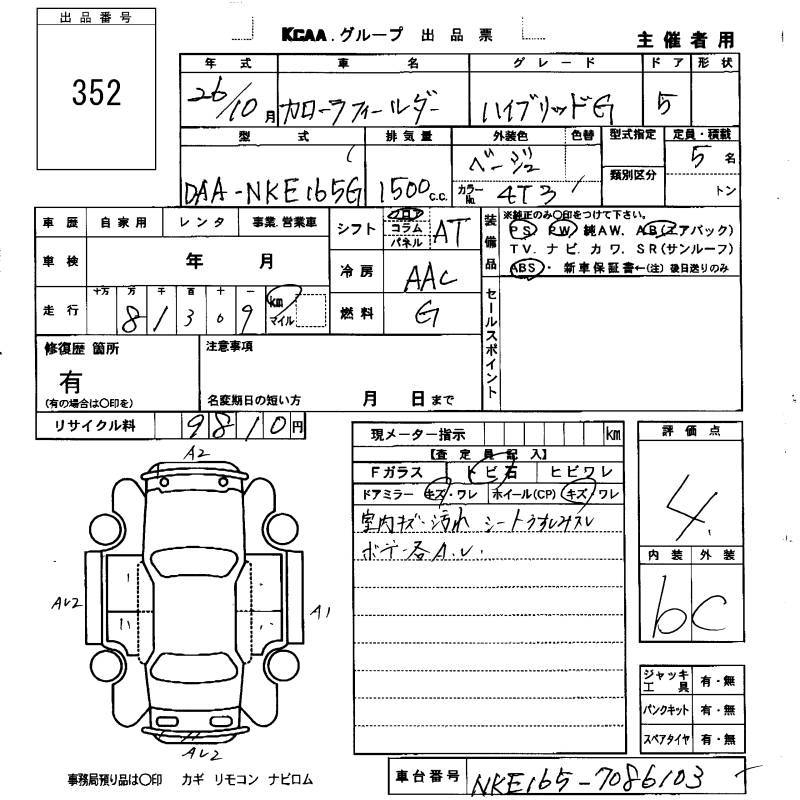 出品番号
352
KCAA.グループ 出品票
主催者用
年式 車名 グレード ドア 形状
26/10月 カローラフィールダー ハイブリッドG 5
型式 排気量 外装色 色替 型式指定 定員・積載
DAA-NKE165G 1500 c.c. ベージュ 5名
カラーNo. 4T3 類別区分 トン
車歴 自家用 レンタ 事業.営業車
シフト フロア コラム パネル AT
装備品
※純正のみ○印をつけて下さい。
PS PW 純AW. AB(エアバック)
TV. ナビ. カワ. SR(サンルーフ)
ABS・新車保証書←(注)後日送りのみ
車検 年 月
冷房 AAC
走行 十万 万 千 百 十 一
81309 km マイル
燃料 G
セールスポイント
修復歴 箇所
有
(有の場合は○印を)
注意事項
名変期日の短い方 月 日まで
リサイクル料 9810円
現メーター指示 km
【査定員記入】
Fガラス トビ石 ヒビワレ
ドアミラー キズ・ワレ ホイール(CP) キズ/ワレ
室内キズ・汚れ シートうすしみスレ
ボデー各A.U.
評価点
4.
内装 外装
b C
A2
AU2
A1
AU2
ジャッキ工具 有・無
パンクキット 有・無
スペアタイヤ 有・無
事務局預り品は○印 カギ リモコン ナビロム
車台番号 NKE165-7086103